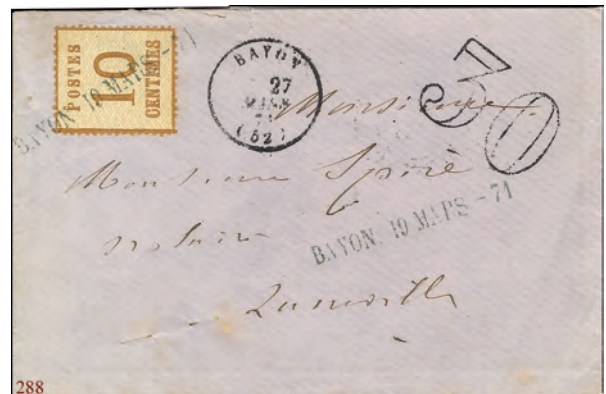 POSTES
10
CENTIMES
BAYON 19 MARS - 71
BAYON
27
MARS
71
(52)
30
Monsieur
Monsieur Spire
notaire
BAYON. 19 MARS - 71
Lunéville
288